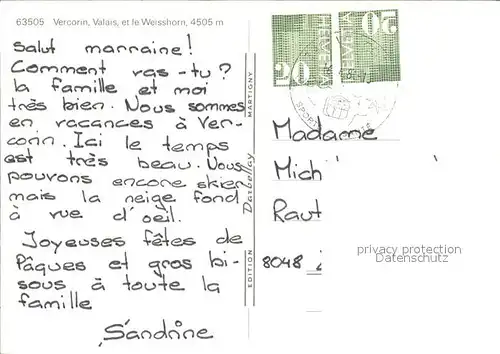 63505 Vercorin, Valais, et le Weisshorn, 4505 m
Salut marraine!
Comment vas-tu?
la famille et moi
très bien. Nous sommes
en vacances à Ver-
corin. Ici le temps
est très beau. Nous
pouvons encore skier
mais la neige fond
à vue d'oeil.
Joyeuses fêtes de
Pâques et gros bi-
sous à toute la
famille
Sandrine
EDITION Darbellay MARTIGNY
HELVETIA 20
HELVETIA 20
SPORT
Madame
Mich
Raut
8048
privacy protection
Datenschutz